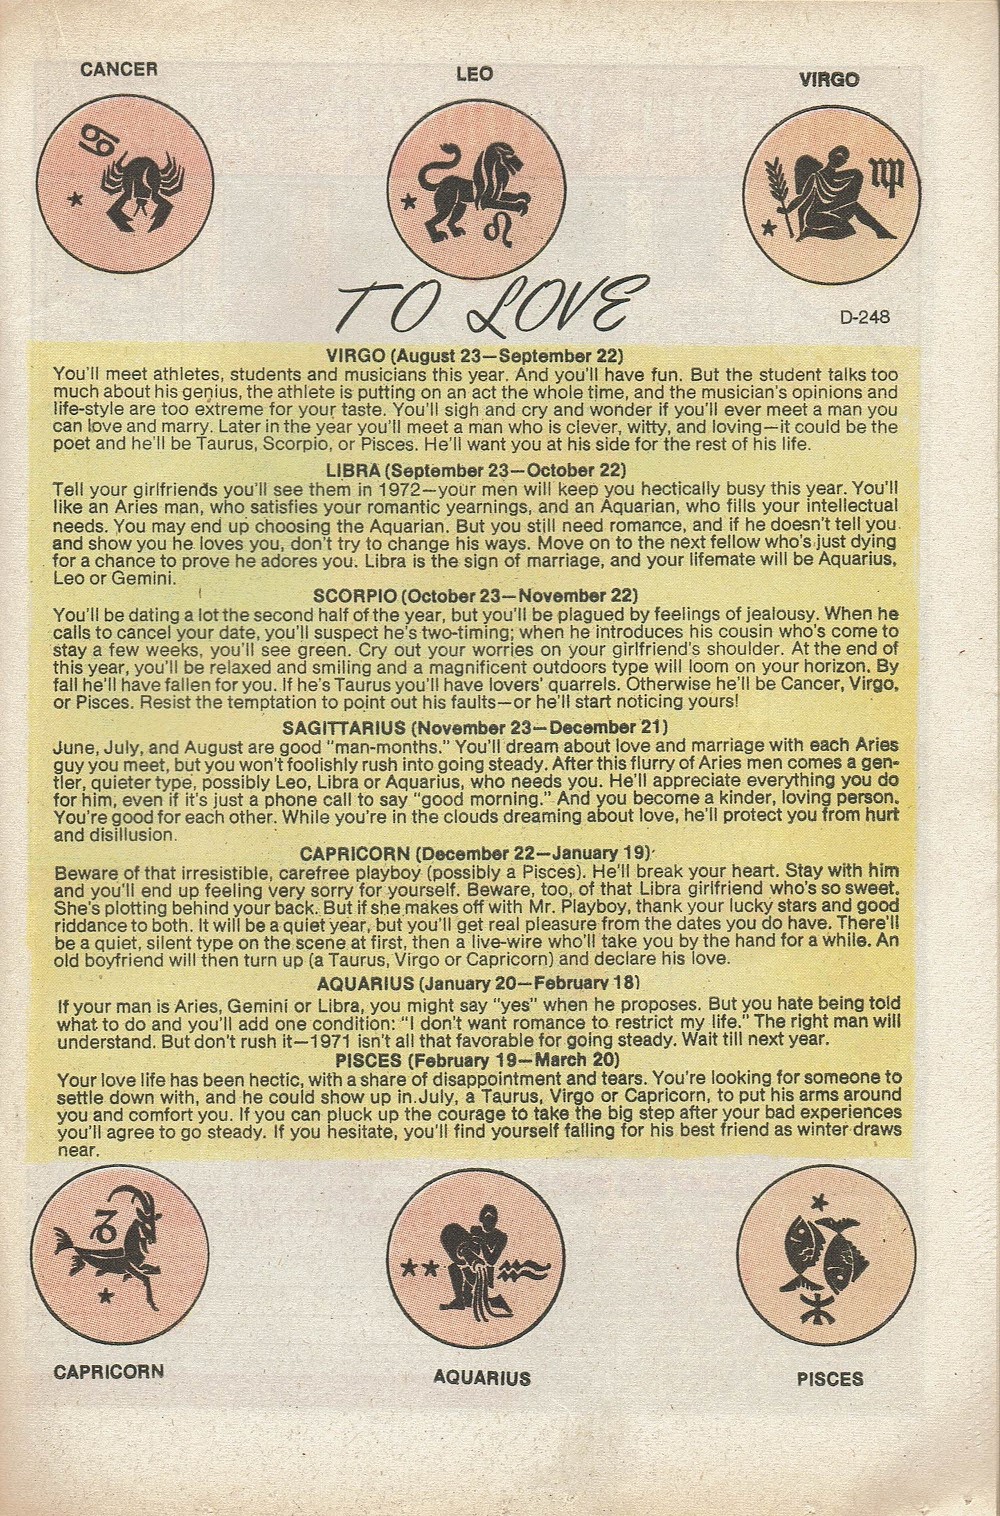 CANCER
LEO
VIRGO
TO LOVE
D-248
VIRGO (August 23—September 22)
You'll meet athletes, students and musicians this year. And you'll have fun. But the student talks too
much about his genius, the athlete is putting on an act the whole time, and the musician's opinions and
life-style are too extreme for your taste. You'll sigh and cry and wonder if you'll ever meet a man you
can love and marry. Later in the year you'll meet a man who is clever, witty, and loving—it could be the
poet and he'll be Taurus, Scorpio, or Pisces. He'll want you at his side for the rest of his life.
LIBRA (September 23—October 22)
Tell your girlfriends you'll see them in 1972—your men will keep you hectically busy this year. You'll
like an Aries man, who satisfies your romantic yearnings, and an Aquarian, who fills your intellectual
needs. You may end up choosing the Aquarian. But you still need romance, and if he doesn't tell you
and show you he loves you, don't try to change his ways. Move on to the next fellow who's just dying
for a chance to prove he adores you. Libra is the sign of marriage, and your lifemate will be Aquarius,
Leo or Gemini.
SCORPIO (October 23—November 22)
You'll be dating a lot the second half of the year, but you'll be plagued by feelings of jealousy. When he
calls to cancel your date, you'll suspect he's two-timing; when he introduces his cousin who's come to
stay a few weeks, you'll see green. Cry out your worries on your girlfriend's shoulder. At the end of
this year, you'll be relaxed and smiling and a magnificent outdoors type will loom on your horizon. By
fall he'll have fallen for you. If he's Taurus you'll have lovers' quarrels. Otherwise he'll be Cancer, Virgo,
or Pisces. Resist the temptation to point out his faults—or he'll start noticing yours!
SAGITTARIUS (November 23—December 21)
June, July, and August are good "man-months." You'll dream about love and marriage with each Aries
guy you meet, but you won't foolishly rush into going steady. After this flurry of Aries men comes a gen-
tler, quieter type, possibly Leo, Libra or Aquarius, who needs you. He'll appreciate everything you do
for him, even if it's just a phone call to say "good morning." And you become a kinder, loving person.
You're good for each other. While you're in the clouds dreaming about love, he'll protect you from hurt
and disillusion.
CAPRICORN (December 22—January 19)
Beware of that irresistible, carefree playboy (possibly a Pisces). He'll break your heart. Stay with him
and you'll end up feeling very sorry for yourself. Beware, too, of that Libra girlfriend who's so sweet.
She's plotting behind your back. But if she makes off with Mr. Playboy, thank your lucky stars and good
riddance to both. It will be a quiet year, but you'll get real pleasure from the dates you do have. There'll
be a quiet, silent type on the scene at first, then a live-wire who'll take you by the hand for a while. An
old boyfriend will then turn up (a Taurus, Virgo or Capricorn) and declare his love.
AQUARIUS (January 20—February 18)
If your man is Aries, Gemini or Libra, you might say "yes" when he proposes. But you hate being told
what to do and you'll add one condition: "I don't want romance to restrict my life." The right man will
understand. But don't rush it—1971 isn't all that favorable for going steady. Wait till next year.
PISCES (February 19—March 20)
Your love life has been hectic, with a share of disappointment and tears. You're looking for someone to
settle down with, and he could show up in July, a Taurus, Virgo or Capricorn, to put his arms around
you and comfort you. If you can pluck up the courage to take the big step after your bad experiences
you'll agree to go steady. If you hesitate, you'll find yourself falling for his best friend as winter draws
near.
CAPRICORN
AQUARIUS
PISCES